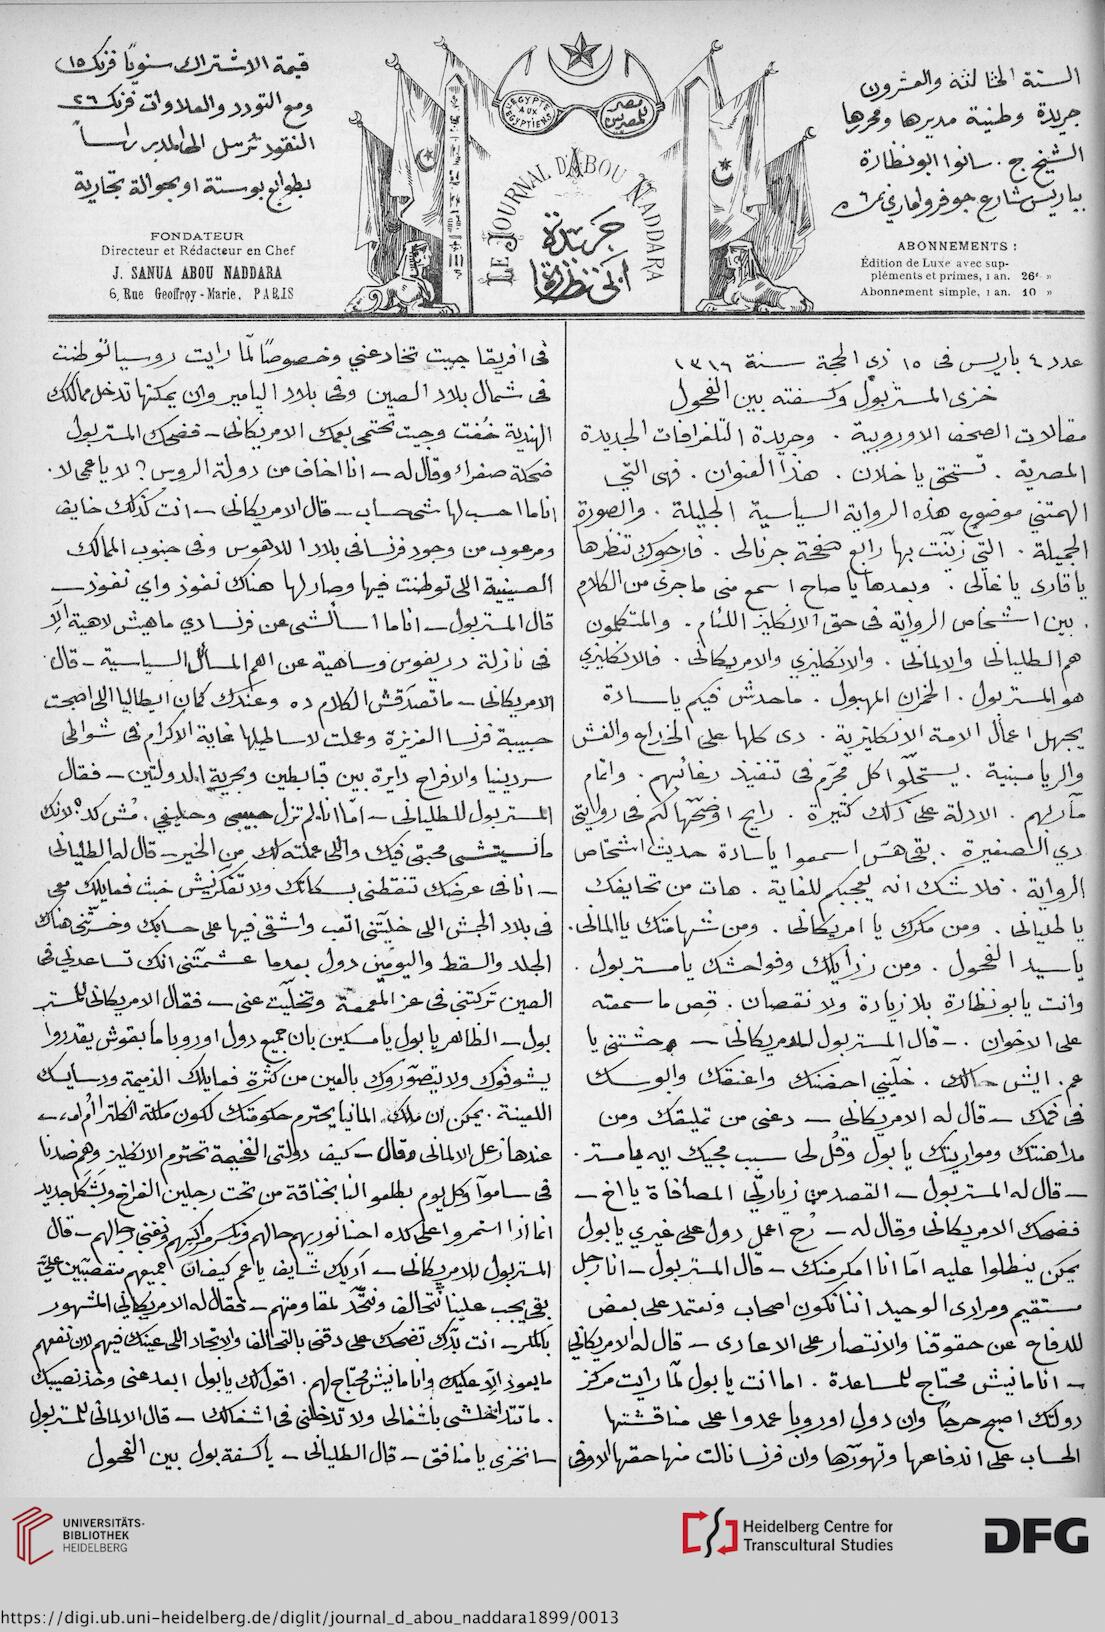 السنة الثالثة والعشرون
جريدة وطنية مديرها ومحررها
الشيخ ج. سانوا ابو نظارة
بباريس شارع جوفروا ماري نمرة ٦
ABONNEMENTS :
Édition de Luxe avec sup-
pléments et primes, 1 an. 26f »
Abonnement simple, 1 an. 10 »
EGYPTE
AUX
EGYPTIENS
مصر
للمصريين
LE JOURNAL D'ABOU NADDARA
جريدة
ابي نظارة
قيمة الاشتراك سنويًا فرنك ١٥
ومع التودد والعلاوات فرنك ٢٦
النقود ترسل الى المدير راسا
بطوابع بوستة او بحوالة تجارية
FONDATEUR
Directeur et Rédacteur en Chef
J. SANUA ABOU NADDARA
6, Rue Geoffroy-Marie, PARIS
عدد ٤ باريس في ١٥ ذي الحجة سنة ١٣١٦
خزى المستر بول وكسفته بين الفحول
مقالات الصحف الاوروبية . وجريدة التلغرافات الجديدة
المصرية . تستحق يا خلان . هذا العنوان . فهي التي
الهمتني موضوع هذه الرواية السياسية الجليلة . والصورة
الجميلة . التي زيّنت بها رابع صفحة جرنالي . فارجوك تنظرها
يا قارى يا غالى . وبعدها يا صاح اسمع مني ما جرى من الكلام
. بين اشخاص الرواية في حق الانكليز اللئام . والمتكلمون
هم الطلياني والالماني . والانكليزي والامريكاني . فالانكليزي
هو المستر بول . الخمران المهبول . ما حدش فيكم يا سادة
يجهل اعمال الامة الانكليزية . دى كلها على الخداع والغش
والريا مبنية . يستحلّوا كل محرّم في تنفيذ رغائبهم . واتمام
مآربهم . الادلة على ذلك كثيرة . رايح اوضّحها لكم في روايتي
دي الصغيرة . بقى هس اسمعوا يا سادة حديث اشخاص
الرواية . فلا شك انه يعجبكم للغاية . هات من تحايفك
يا طلياني . ومن مكرك يا امريكاني . ومن شهامتك يا الماني .
يا سيد الفحول . ومن رزايلك وفواحشك يا مستر بول .
وانت يا بو نظارة بلا زيادة ولا نقصان . قص ما سمعته
على الاخوان . – قال المستر بول للامريكاني – وحشتني يا
عم . ايش حالك . خلّيني احضنك واعنقك وابوسك
في فمك – قال له الامريكاني – دعني من تمليقك ومن
مداهنتك ومواربتك يا بول وقل لي سبب مجيك ايه يا مستر .
– قال له المستر بول – القصد من زيارتي المصافاة يا اخ –
فضحك الامريكاني وقال له – رح اعمل دول على غيري يا بول
يمكن ينطلوا عليه اما انا امكر منك – قال المستر بول – انا رجل
مستقيم ومرادى الوحيد اننا نكون اصحاب ونعتمد على بعض
للدفاع عن حقوقنا والانتصار على الاعادى – قال له الامريكاني
– انا مانيش محتاج للمساعدة . اما انت يا بول لمّا رايت مركز
دولتك اصبح حرجًا وان دول اوروبا عمدوا على مناقشتها
الحساب على اندفاعها وتهورها وان فرنسا نالت منها حقها الاوفي
في افريقا جيت تخادعني وخصوصًا لمّا رايت روسيا توطنت
في شمال بلاد الصين وفي بلاد اليامير وان يمكنها تدخل ممالك
الهندية خفت وجيت تحتمي بعمك الامريكاني – فضحك المستر بول
ضحكة صفراء وقال له – انا اخاف من دولة الروس؟ لا يا عمي لا .
انا ما احسب لها شي حساب – قال الامريكاني – انت كذلك خايف
ومرعوب من وجود فرنسا في بلاد اللاهوس وفي جنوب الممالك
الصينية اللي توطنت فيها وصار لها هناك نفوذ واي نفوذ –
قال المستر بول – انا ما اسألشي عن فرنسا دي ماهيش لاهية الّا
في نازلة دريفوس وساهية عن اهم المسائل السياسية – قال
الامريكاني – ما تصدقش الكلام ده وعندك كمان ايطاليا اللي اصبحت
حبيبة فرنسا العزيزة وعملت لاساطيلها غاية الاكرام في شواطي
سردينيا والافراح دايرة بين قبابطين وبحرية الدولتين – فقال
المستر بول للطلياني – امّا انا لم تزل حبيبي وحليفي . مش كده؟ لانك
ما نسيتشي محبتي فيك واللي عملته لك من الخير – قال له الطلياني
– انا في عرضك تنقطني بسكاتك ولا تفكرنيش خبث فعايلك معي
في بلاد الحبش اللي خلّيتني اتعب واشقى فيها على حسابك وخسّرتني هناك
الجلد والسقط واليومين دول بعدما عشمتني انك تساعدني في
الصين تركتني في عز المعمعة وتخلّيت عني – فقال الامريكاني للمستر
بول – الظاهر يا بول يا مسكين بان جميع دول اوروبا ما بقوش يقدروا
يشوفوك ولا يتصوّروك بالعين من كثرة فعايلك الذميمة ودسايسك
اللعينة . يمكن ان ملك المانيا يحترم حكومتك لكون ملكة انكلترا
عندها زعل الالماني وقال – كيف دولتي الفخيمة تحترم الانكليز وهم ضدنا
في ساموآ وكل يوم يطلعوا لنا بخناقة من تحت رجلين الفراخ وبشكل جديد
انما اذا استمروا على كده احنا نوريهم حالهم ونكسر مراكبهم ونفني رجالهم – قال
المستر بول للامريكاني – اديك شايف يا عم كيف ان جميعهم متعصبين عليَّ
بقى يجب علينا نتحالف ونتّحد لمقاومتهم – فقال له الامريكاني المشهور
بالمكر – انت بدّك تضحك على دقني بالتحالف والاتحاد اللي عينك فيهم لان نفعهم
ما يعود الّا عليك وانا مانيش محتاج لهم . اقول لك يا بول ابعد عني وخذ نصيبك
. ما تتداخلشي باشغالي ولا تدخلني في اشغالك – قال الالماني للمستر بول
– انخزى يا منافق – قال الطلياني – يا كسفة بول بين الفحول
UNIVERSITÄTS-
BIBLIOTHEK
HEIDELBERG
Heidelberg Centre for
Transcultural Studies
DFG
https://digi.ub.uni-heidelberg.de/diglit/journal_d_abou_naddara1899/0013